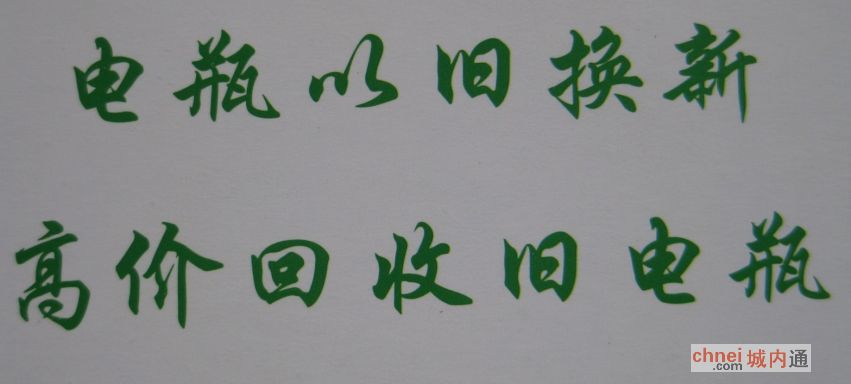 电瓶以旧换新
高价回收旧电瓶
chnei.com城内通